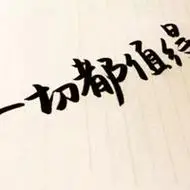 一切都值得